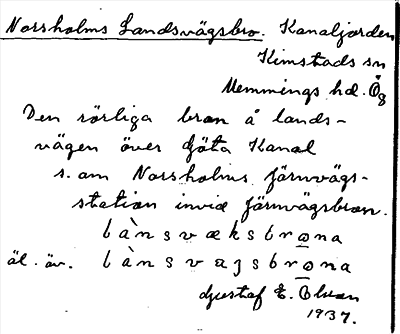 Norsholms Landsvägsbro. Kanaljorden
Kimstads sn
Memmings hd. Ög
Den rörliga bron å lands-
vägen över Göta Kanal
s. om Norsholms järnvägs-
station invid järnvägsbron.
lànsvæksbrona
äl. äv. lànsvagsbrona
Gustaf E. Olsson
1937.